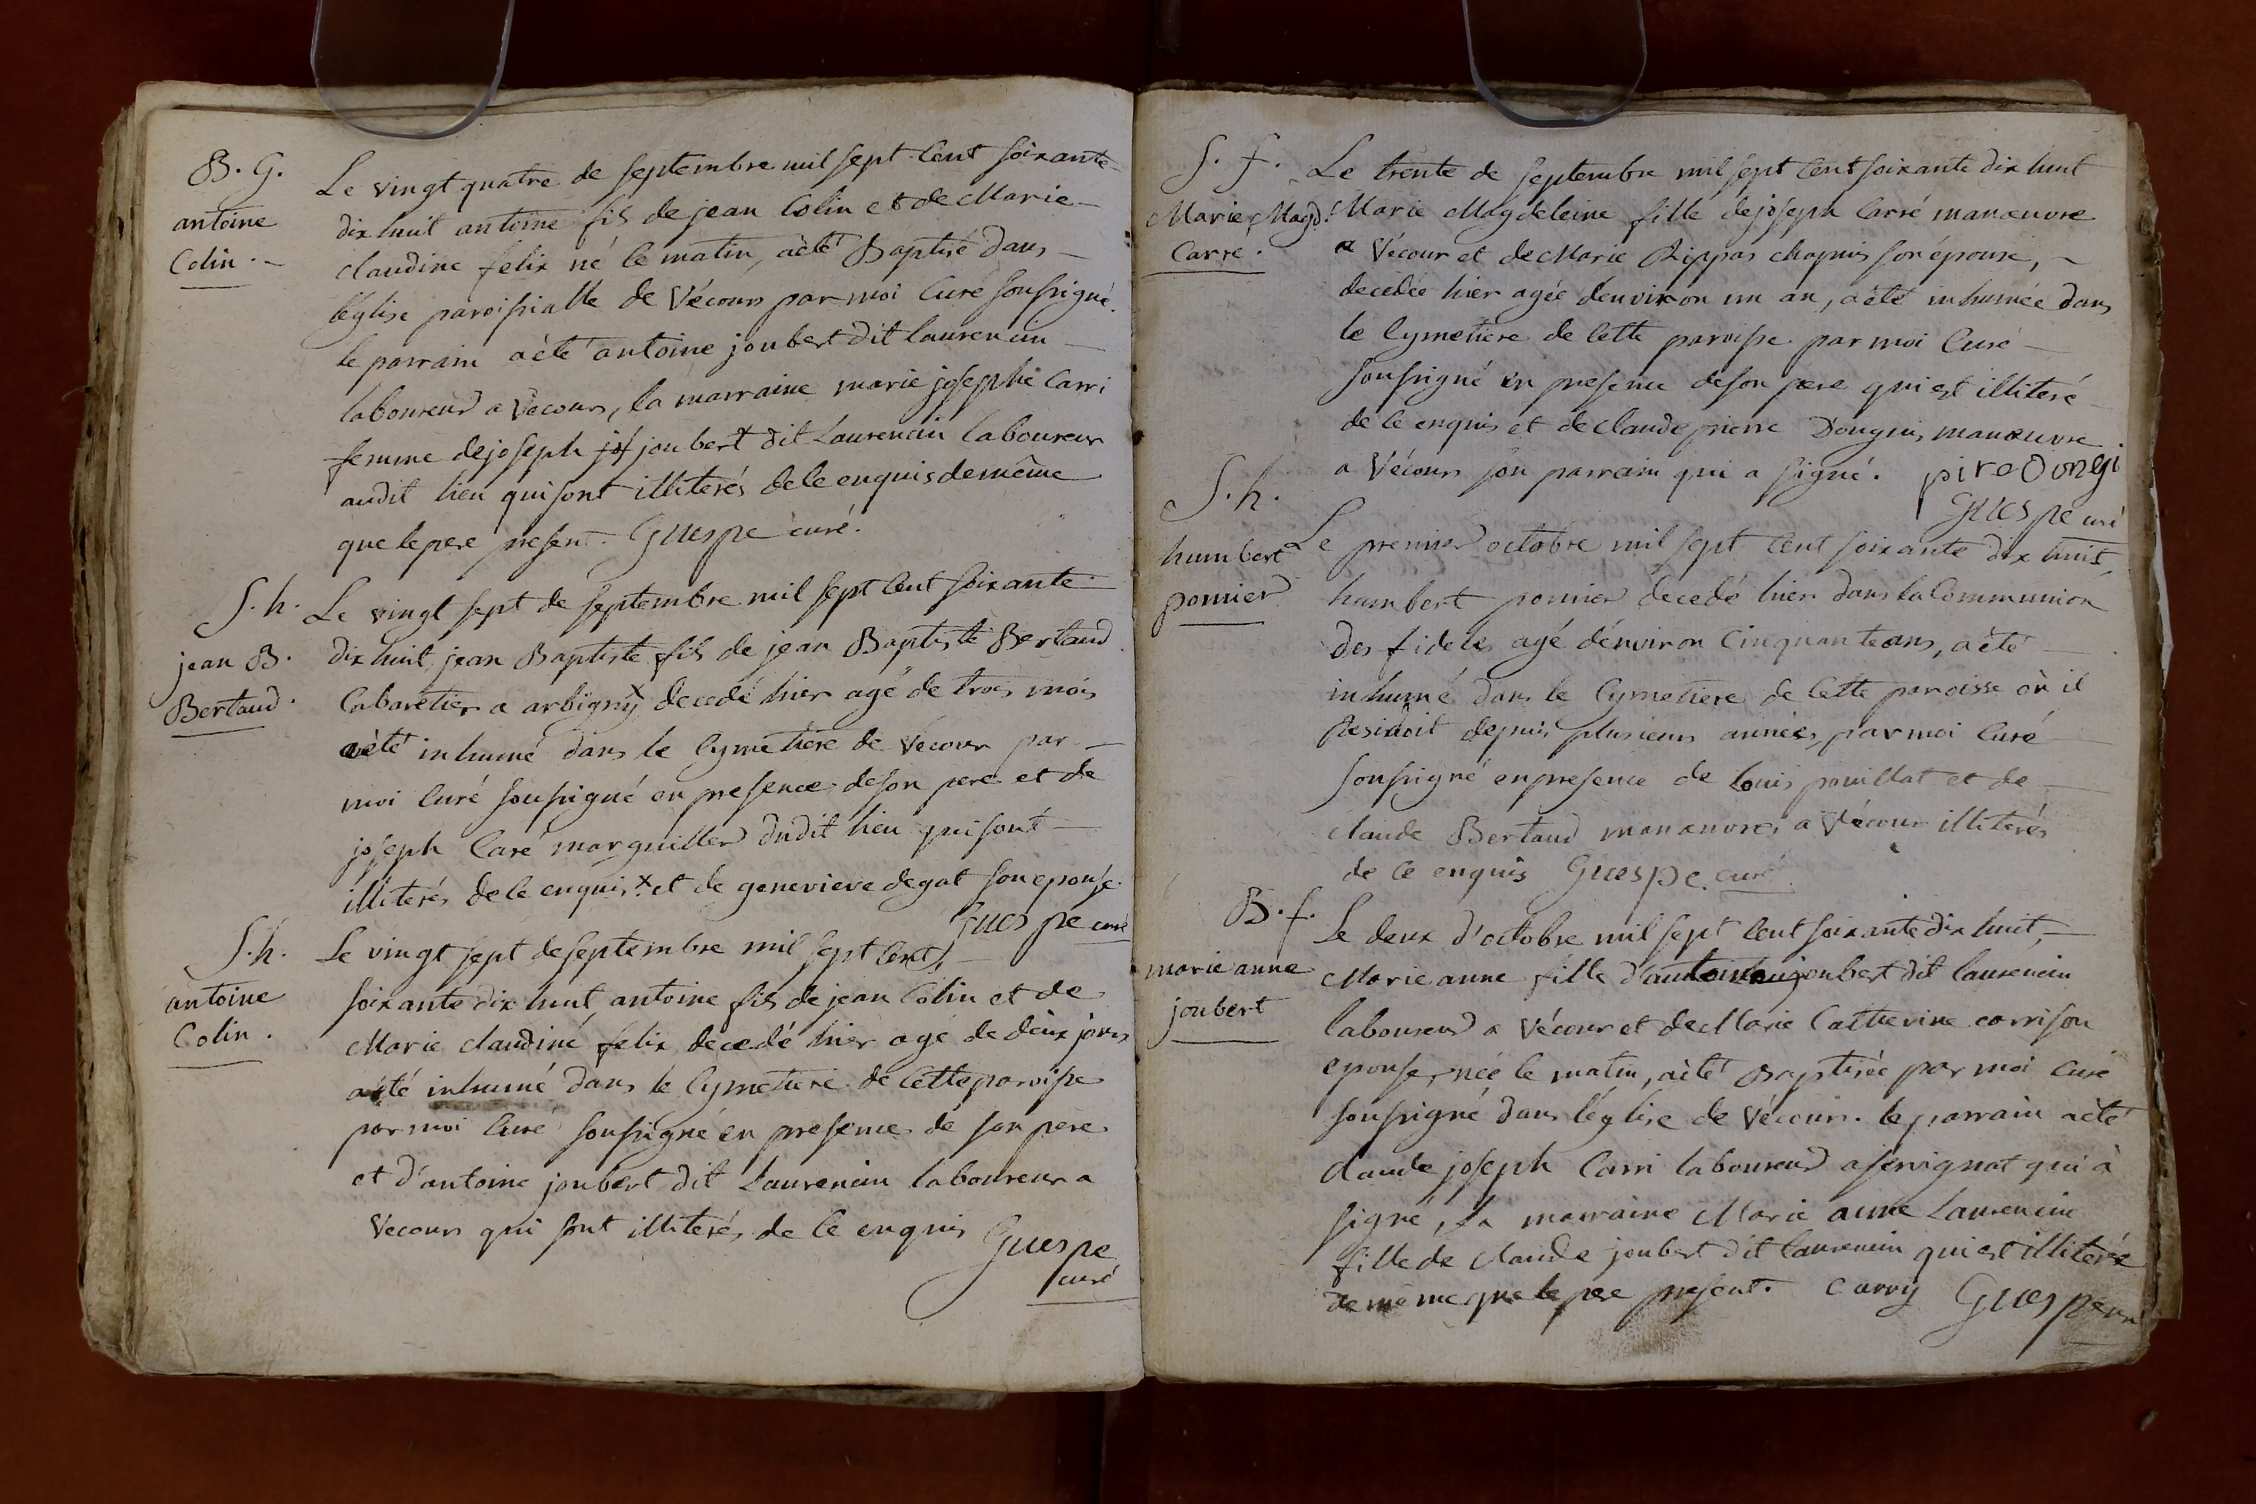 B. G.
antoine
Colin. -
Le vingt quatre de septembre mil sept cent soixante
dix huit antoine fils de jean Colin et de Marie
claudine felix né le matin, a èté Baptisé dans
l'église paroissialle de Vécours par moi Curé soussigné.
le parrain a èté antoine joubert dit laurencin
laboureur a Vecours, la marraine marie josephe Carri
femme de joseph joubert dit Laurencin laboureur
audit lieu qui sont illiterés de ce enquis de même
que le pere present. Guespe curé.
S. h.
jean B.
Bertaud.
Le vingt sept de septembre mil sept cent soixante
dix huit jean Baptiste fils de jean Baptiste Bertaud
Cabaretier a arbigny x decedé hier agé de trois mois
a èté inhumé dans le Cymetiere de Vecour par
moi Curé soussigné en presence de son pere et de
joseph Caré marguiller dudit lieu qui sont
illiterés de ce enquis. x et de genevieve degat son epouse.
Guespe curé
S. h.
antoine
Colin.
Le vingt sept de septembre mil sept cent
soixante dix huit antoine fils de jean Colin et de
Marie claudine felix decedé hier agé de deux jours
a èté inhumé dans le Cymetiere de cette paroisse
par moi Curé soussigné en presence de son pere
et d'antoine joubert dit Laurencin laboureur a
Vecours qui sont illiterés de ce enquis
Guespe
curé
S. f.
Marie Magd.
Carre.
Le trente de septembre mil sept cent soixante dix huit
Marie Magdeleine fille de joseph Carré manœuvre
a Vécour et de Marie Rippas chapuis son épouse,
decedée hier agée d'environ un an, a èté inhumée dans
le Cymetiere de cette paroisse par moi Curé
soussigné en presence de son pere qui est illiteré
de ce enquis et de claude pierre Donguis manœuvre
a Vécours son parrain qui a signé. pire Dongi
Guespe curé
S. h.
humbert
ponnier
Le premier octobre mil sept cent soixante dix huit,
humbert ponnier decedé hier dans la Communion
des fideles agé d'environ Cinquante ans, a èté
inhumé dans le Cymetiere de cette paroisse où il
residoit depuis plusieurs années, par moi Curé
soussigné en presence de Louis pouillat et de
claude Bertaud manœuvres a Vécour illiterés
de ce enquis Guespe. curé.
B. f.
marie anne
joubert
Le deux d'octobre mil sept cent soixante dix huit,
Marie anne fille d'antoine joubert dit laurencin
laboureur a Vécour et de Marie Catherine carri son
epouse, née le matin, a èté Baptisée par moi Curé
soussigné dans l'église de Vécours. le parrain a èté
claude joseph Carri laboureur a servignat qui à
signé, la marraine Marie anne Laurencin
fille de claude joubert dit laurencin qui est illiterée
de même que le pere present. carry Guespe curé